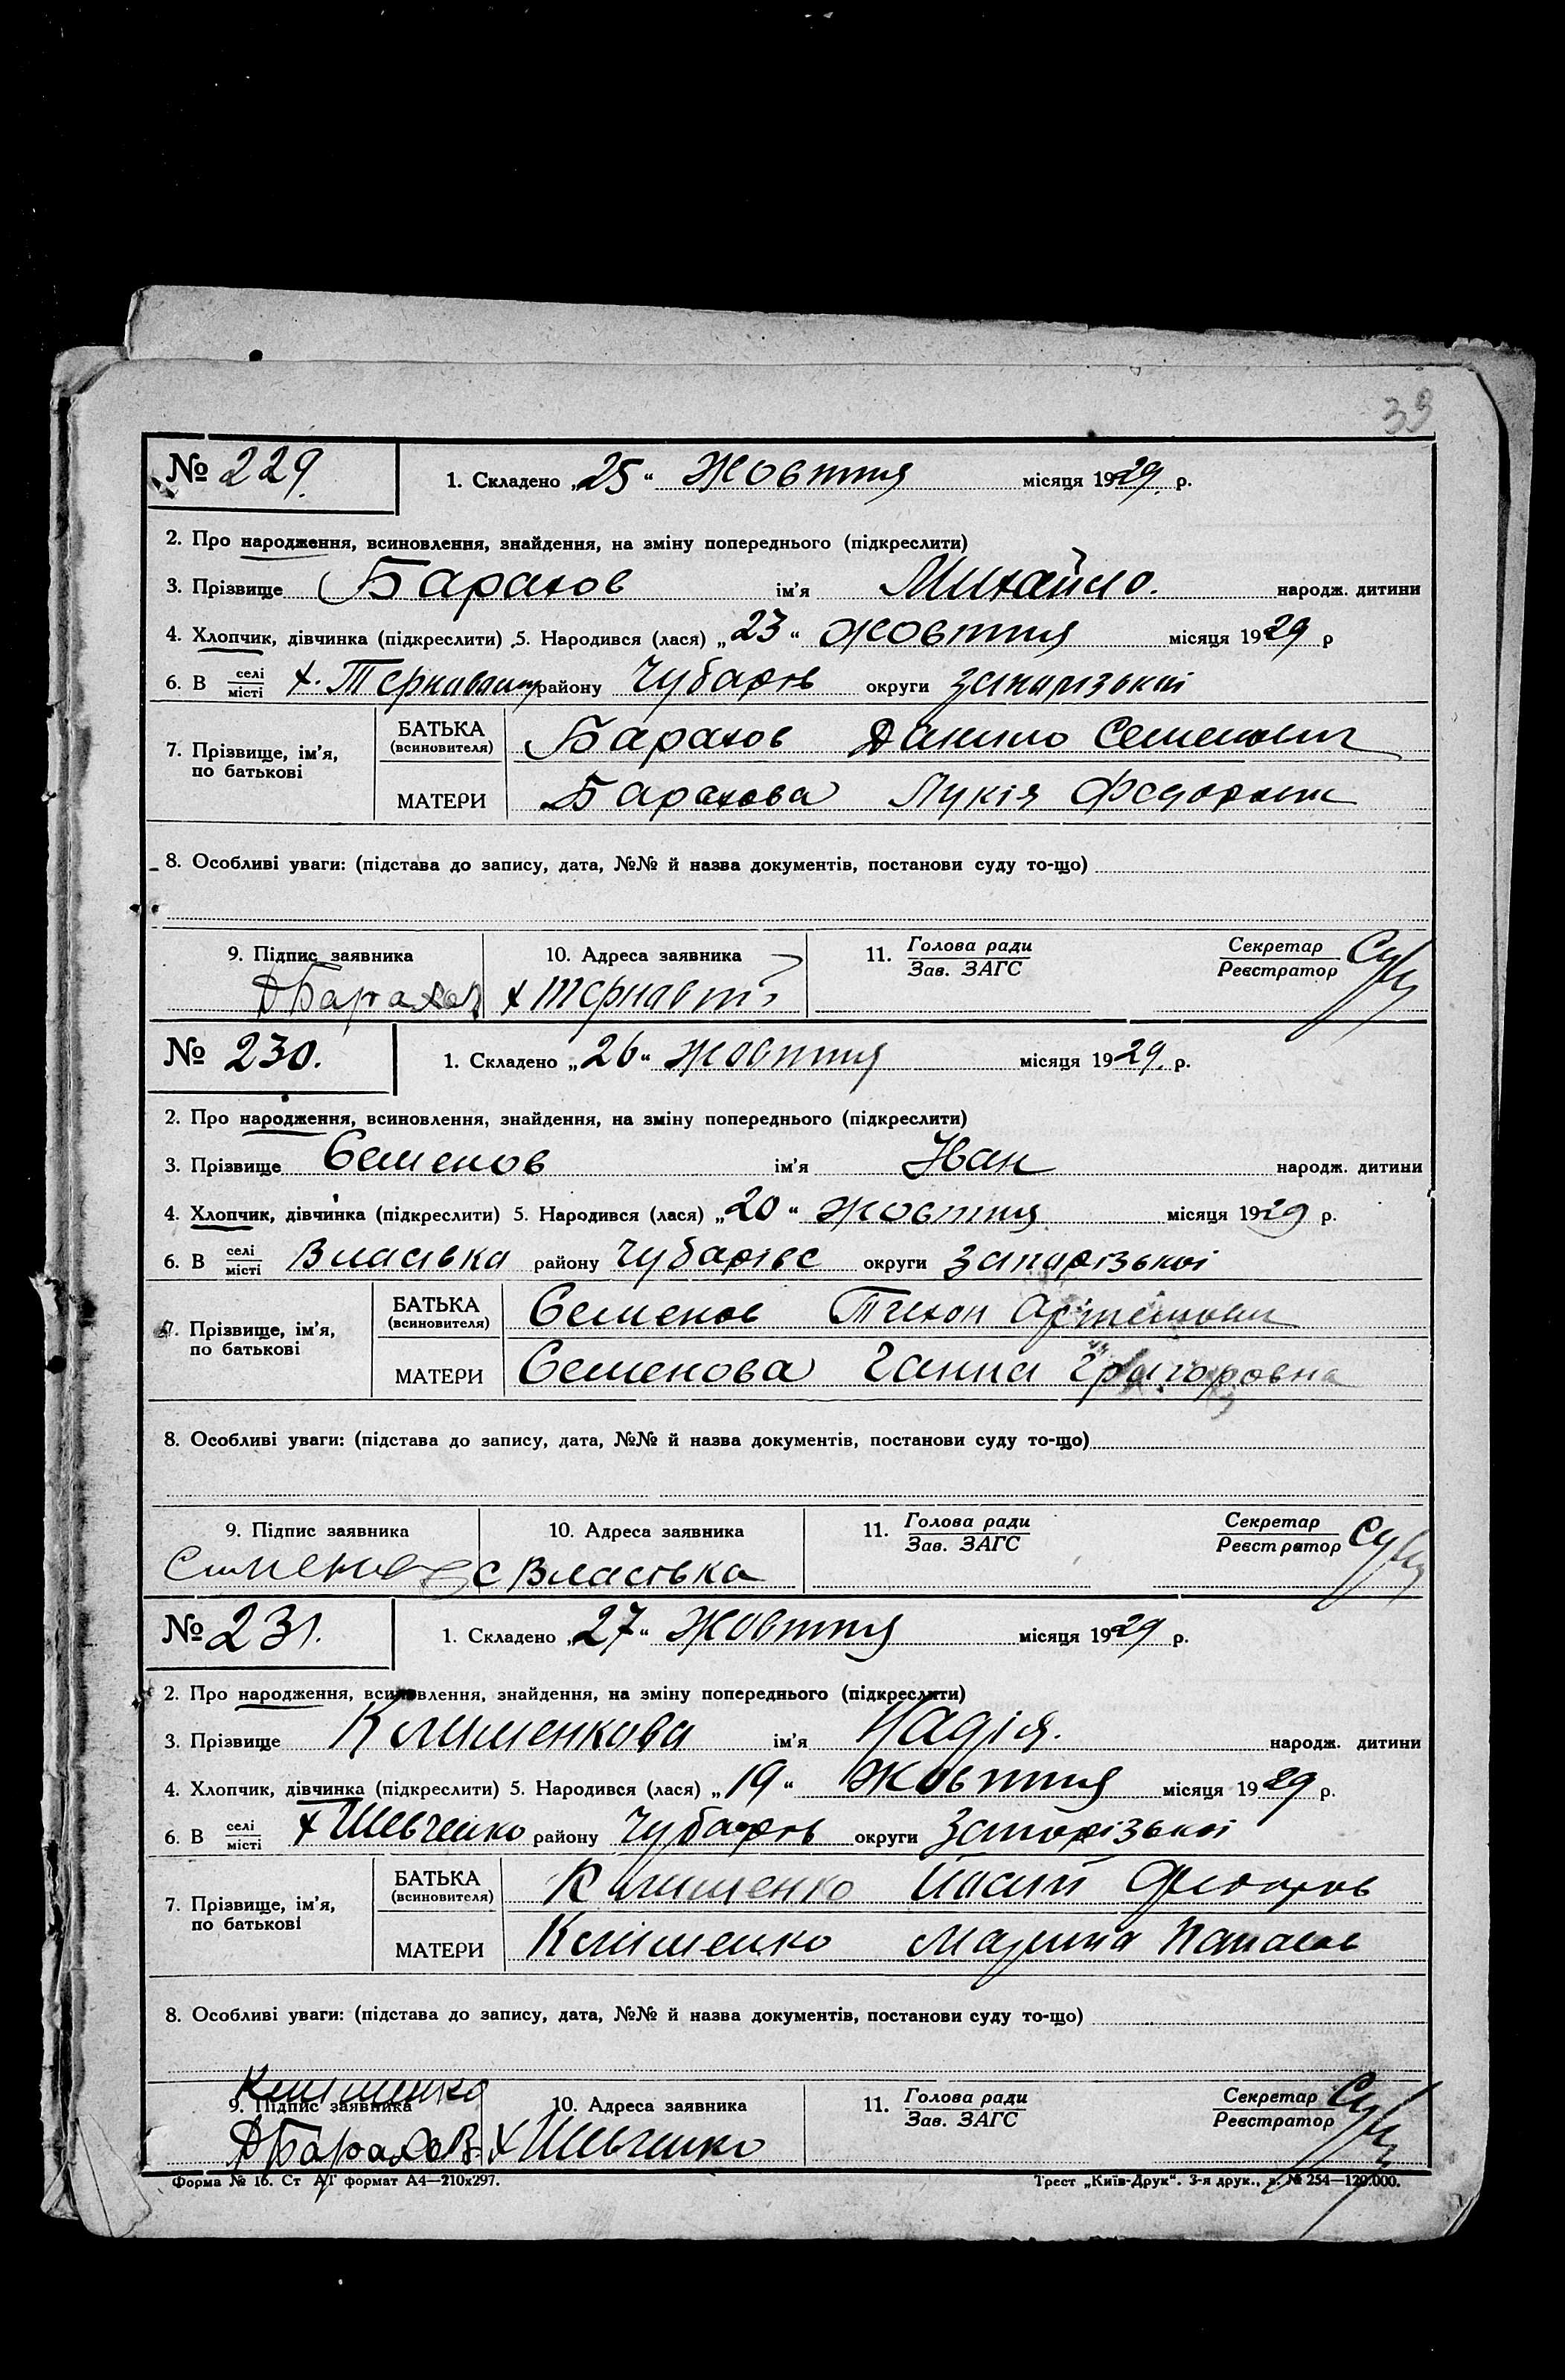 39
№ 229. 1. Складено „25“ Жовтня місяця 1929. р.
2. Про народження, всиновлення, знайдення, на зміну попереднього (підкреслити)
3. Прізвище Барахов ім'я Михайло. народж. дитини
4. Хлопчик, дівчинка (підкреслити) 5. Народився (лася) „23“ жовтня місяця 1929 р
6. В селі місті х. району Чубарів округи запорізької
7. Прізвище, ім'я, по батькові
БАТЬКА (всиновителя) Барахов Данило Семенович
МАТЕРИ Барахова Лукія
8. Особливі уваги: (підстава до запису, дата, №№ й назва документів, постанови суду то-що)
9. Підпис заявника 10. Адреса заявника 11. Голова ради Зав. ЗАГС Секретар Реєстратор
ДБарахов х
№ 230. 1. Складено „26“ жовтня місяця 1929. р.
2. Про народження, всиновлення, знайдення, на зміну попереднього (підкреслити)
3. Прізвище Семенов ім'я Іван народж. дитини
4. Хлопчик, дівчинка (підкреслити) 5. Народився (лася) „20“ жовтня місяця 1929 р.
6. В селі місті Власівка району Чубарівс округи запорізької
7. Прізвище, ім'я, по батькові
БАТЬКА (всиновителя) Семенов Тихон
МАТЕРИ Семенова Ганна Григоровна
8. Особливі уваги: (підстава до запису, дата, №№ й назва документів, постанови суду то-що)
9. Підпис заявника 10. Адреса заявника 11. Голова ради Зав. ЗАГС Секретар Реєстратор
с Власівка
№ 231. 1. Складено „27“ Жовтня місяця 1929 р.
2. Про народження, всиновлення, знайдення, на зміну попереднього (підкреслити)
3. Прізвище Клименкова ім'я Надія. народж. дитини
4. Хлопчик, дівчинка (підкреслити) 5. Народився (лася) „19“ Жовтня місяця 1929 р.
6. В селі місті х Шевченко району Чубарів округи запорізької
7. Прізвище, ім'я, по батькові
БАТЬКА (всиновителя) Клименко
МАТЕРИ Кліменко Марина Панасов
8. Особливі уваги: (підстава до запису, дата, №№ й назва документів, постанови суду то-що)
Клименко
9. Підпис заявника 10. Адреса заявника 11. Голова ради Зав. ЗАГС Секретар Реєстратор
ДБарахов. х Шевченко
Форма № 16. Ст А/Г формат А4—210х297. Трест „Київ-Друк“. 3-я друк., з. № 254—120.000.